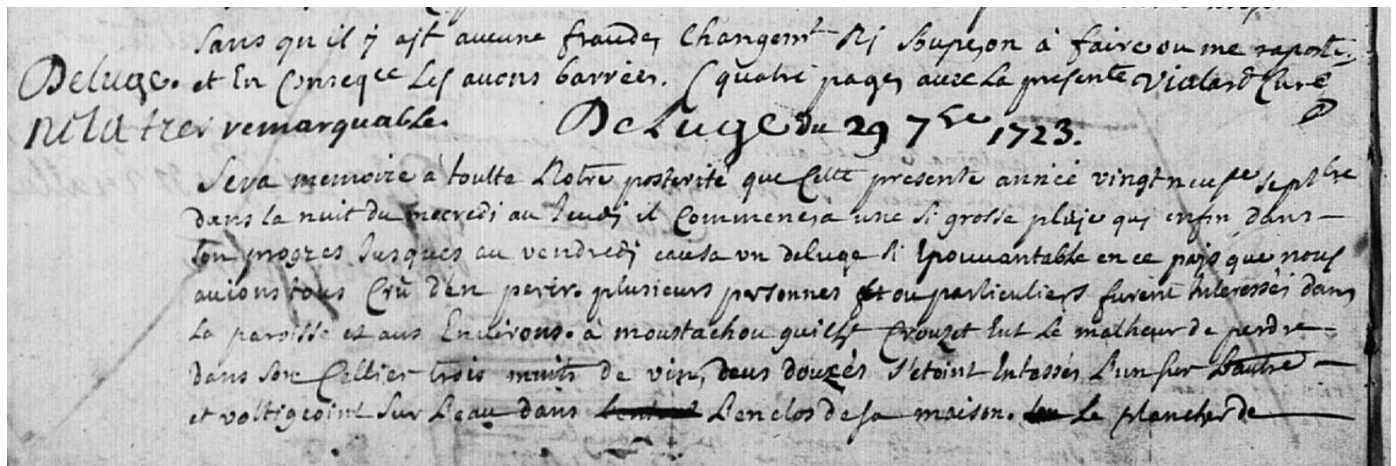 sans qu'il y ajt aucune fraude, changemt nj soupçon à faire ou me raporte,
Deluge. et en conseqce les avons barrées. (quatre pages avec la presente Vialard Curé
nota tres remarquable. DeLuge du 29 7bre 1723.
Sera memoire à toutte Notre posterité que cette presente année vingt neufve septbre
dans la nuit du mecredi au Jeudj il commença une si grosse pluje quj enfin dans
son progres Jusques au vendredj causa vn deluge si Epouuantable en ce pajs que nous
auions tous crû d'en perir. plusieurs personnes et ou particuliers furent Interessés dans
La paroisse et aus Enuirons. à moustachou guilhe Crouzet Eut Le malheur de perdre
dans son Cellier trois muits de vin, deus douzés s'etoint Entassés L'un sur L'autre
et voltigeoint sur L'eau dans L'enclos de sa maison. Le plancher de